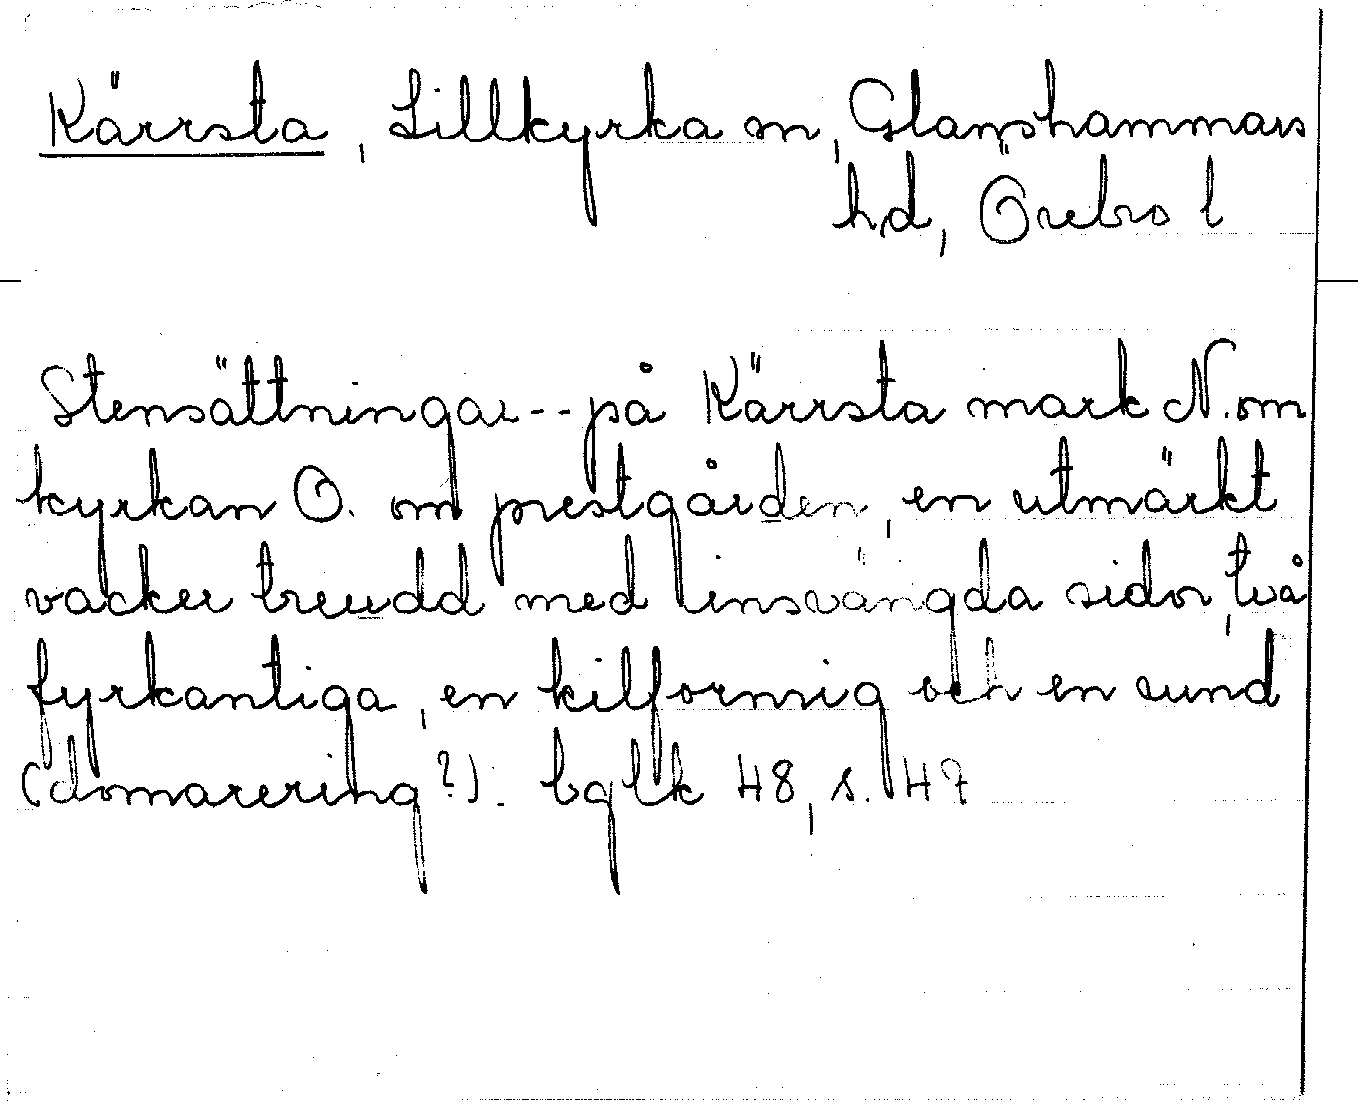 Kärrsta, Lillkyrka sn, Glanshammars
hd, Örebro l
Stensättningar -- på Kärrsta mark N. om
kyrkan O. om prestgården, en utmärkt
vacker treudd med insvängda sidor, två
fyrkantiga, en kilformig och en rund
(domarering?). bglk 48, s. 47